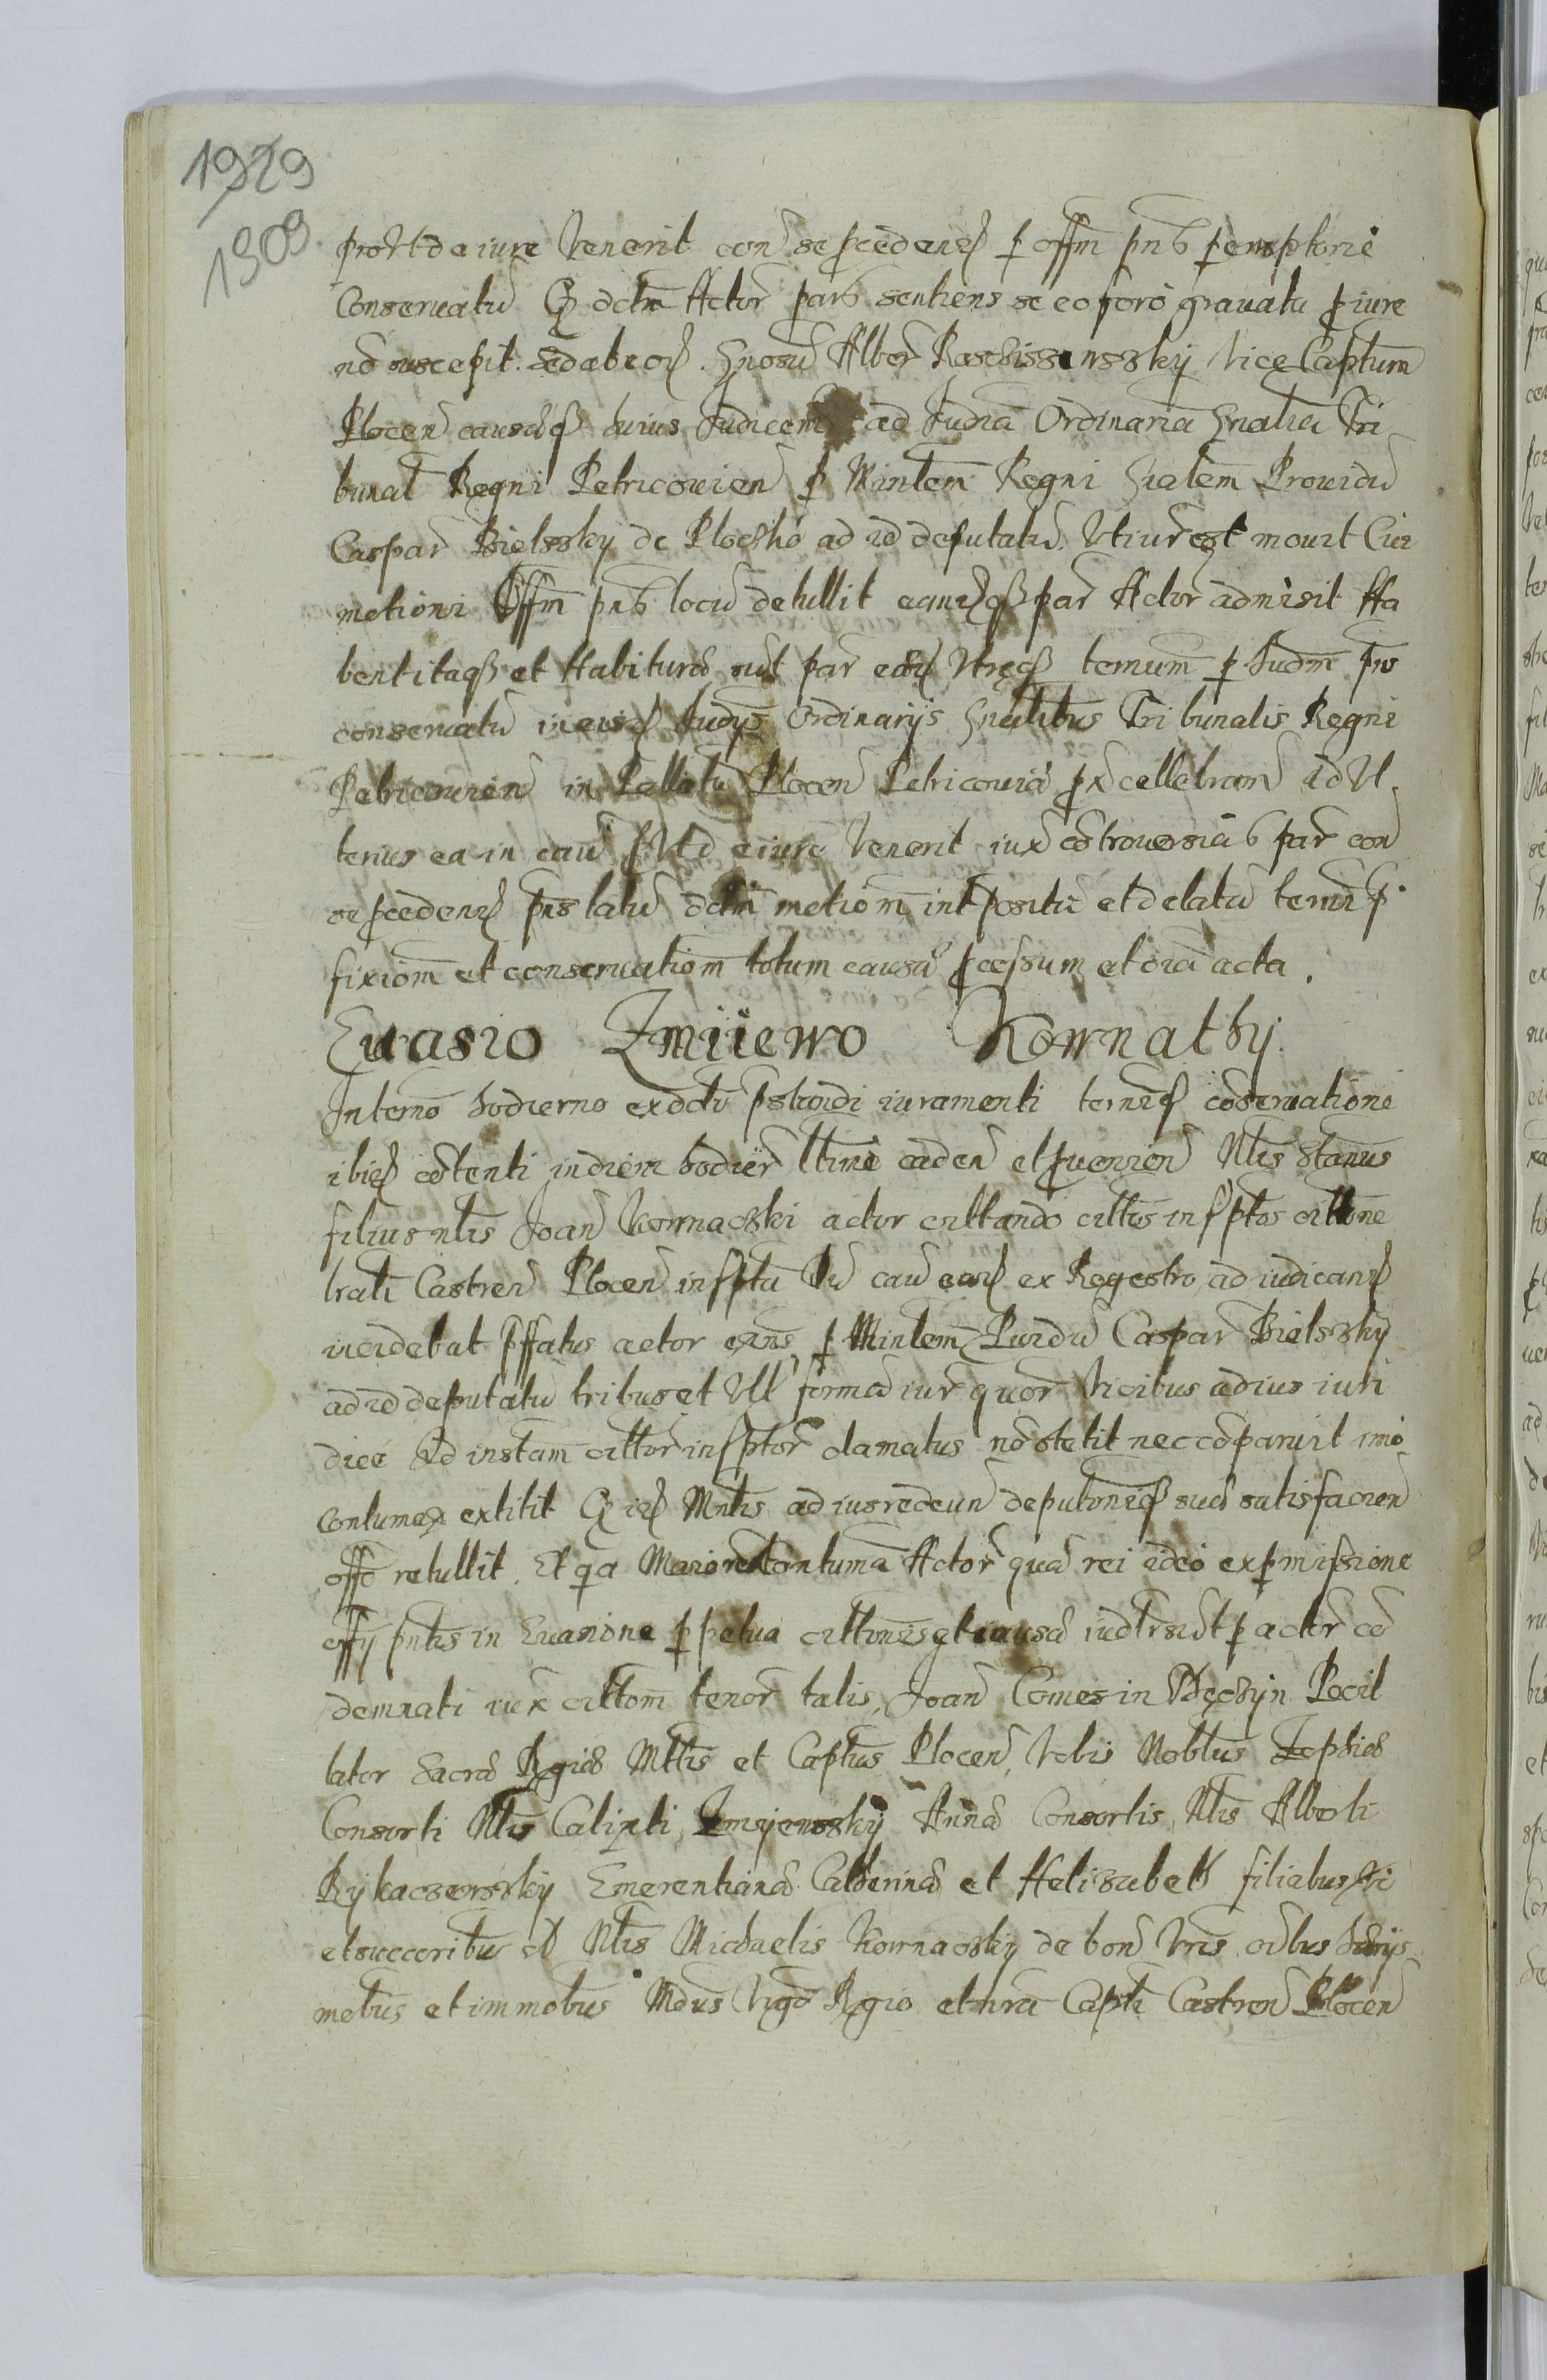 1929
1909
pro Vt de iure Venerit con se pcedend p offm pns pemptorie
Conseruatu Q dctm Actor pars sentiens se eo foro grauatu p iure
no suscepit sed ab eod Gnosu Alber Vice Captum
Plocen causaq huius Judicem ad Judia Ordinaria Gnalia Tri
bunal Regni Petricouien p Mintem Regni Gialem Prouidu
Caspar Bielssky de Ploczko ad id deputatu Vti iur est mouit Cui
motioni Offm pns locu detullit eamdq par Actor admisit Ha
bent itaq et Habitura sut par eaed Vtreq ternum p Judm pns
conseruatu in eisd Judys Ordinarijs Gnalibus Tribunalis Regni
Petricouien in Pallatu Plocen Petricouia px cellebran id Vl
terius ea in cau p Vt d e iure Venerit iux cotrouersias par con
se pcedend pns latu dctm motiom intpositu et delatu termi p
fixiom et conseruatiom totum causa pcessum et oia acta.
Euasio Zmijewo Kownatky
In termo hodierno ex dctu pstandi iuramenti termiq coseruatione
ibid cotenti in diem hodier ltime caden et puenien Nlis Stanus
filius nlis Joan Kownaczki actor cittando cittos insptos cittone
trati Castren Plocen insptu Du cau eaed ex Regestro ad iudicand
incidebat pffatus actor exns p Mintem Puidu Caspar Bielssky
ad id deputatu tribus et Vll forma iur quor Vicibus ad ius iuri
dice Ad instam cittor insptor clamatus no stetit nec coparuit imo
contumax extitit Q id Mntis ad ius redeun deputoniq sua satisfacien
offo retullit. Et qa Maior contuma Actor qua rei ideo ex pmissione
offy pntis in Euasione ppetua cittonis et causa iud sut p actor co
demnati iux cittom tenor talis, Joan Comes in Pocil
lator Sacra Rgia Mttis et Captus Plocen, Vobis Noblus Zophia
Consorti Nlis Calixti Zmyewsky Anna Consortis Nlis Alberti
Rykaczewsky Emerentiana Catherina et Helisabeth filiabus
et succoribus ol Nlis Michaelis Kownaczky de bon Vris oibus
mobus et immobus Mdus Vigo Rgio et nra Capti Castren Plocen